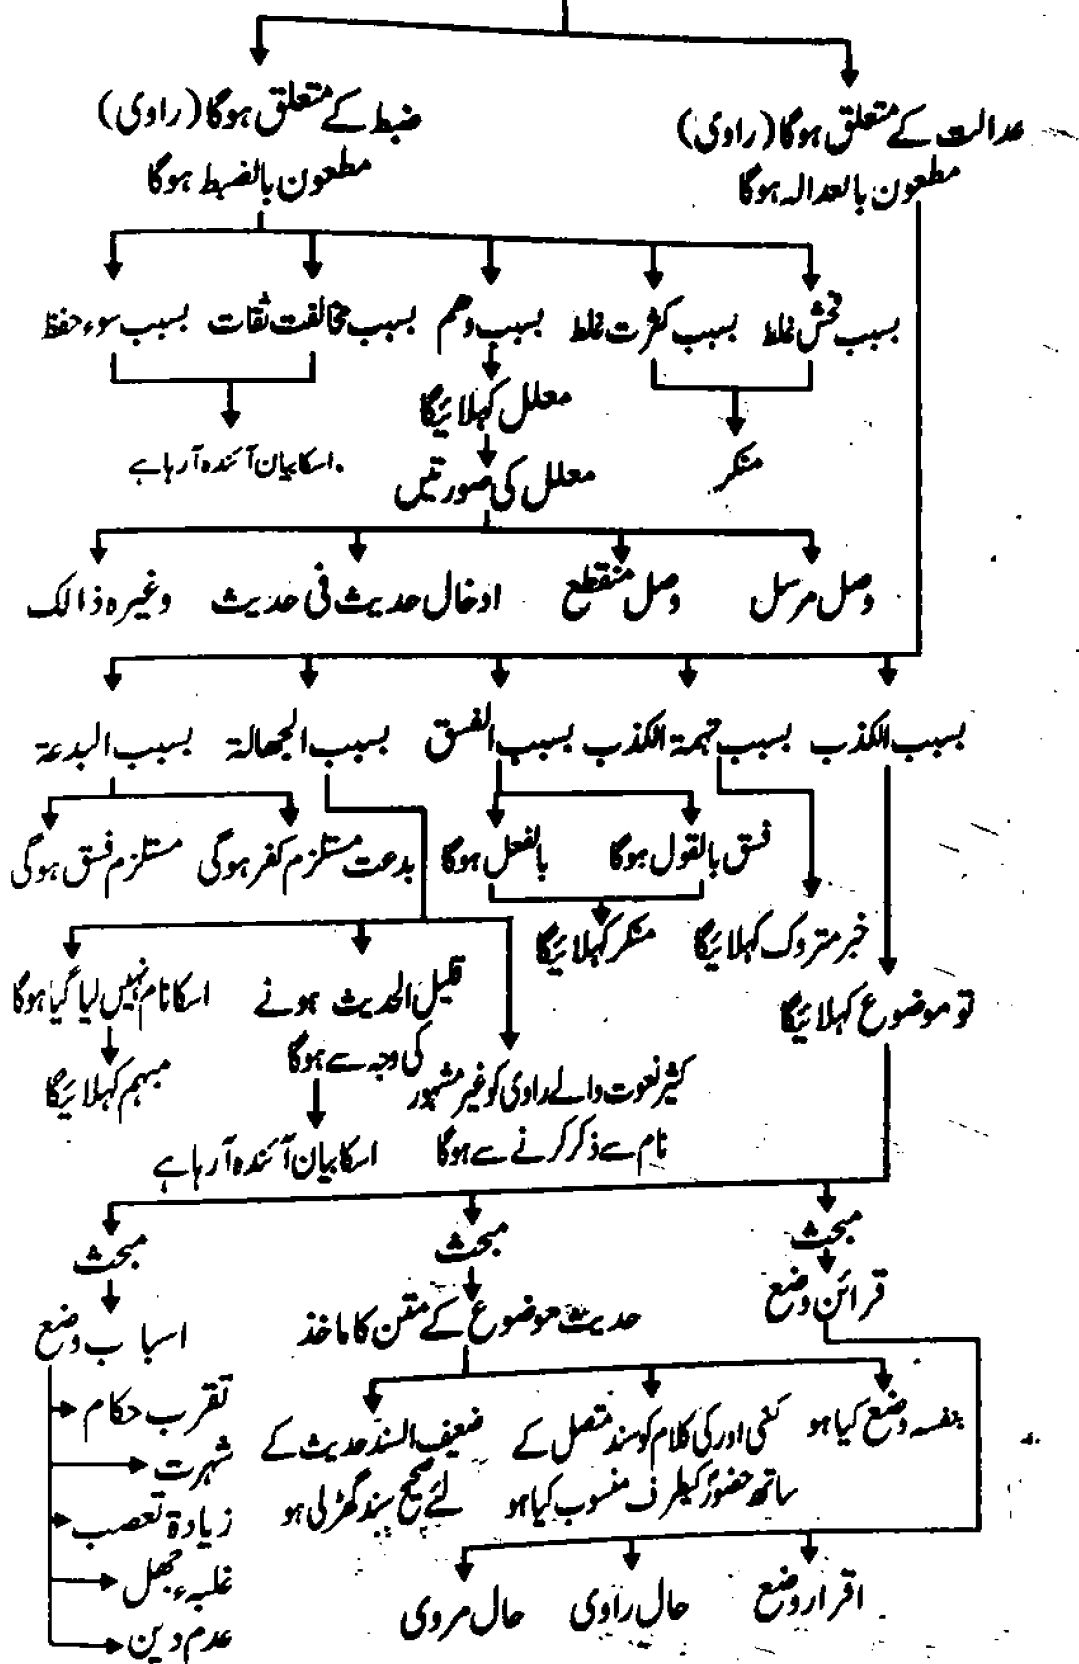 عدالت کے متعلق ہوگا (راوی)
مطعون بالعدالہ ہوگا
ضبط کے متعلق ہوگا (راوی)
مطعون بالضبط ہوگا
بسبب فحش غلط
بسبب کثرت غلط
بسبب وھم
بسبب مخالفت ثقات
بسبب سوء حفظ
منکر
معلل کہلائیگا
معلل کی صورتیں
اسکا بیان آئندہ آرہا ہے
وصل مرسل
وصل منقطع
ادخال حدیث فی حدیث
وغیرہ ذالک
بسبب الکذب
بسبب تہمۃ الکذب
بسبب الفسق
بسبب الجھالۃ
بسبب البدعۃ
فسق بالقول ہوگا
بالفعل ہوگا
بدعت مستلزم کفر ہوگی
مستلزم فسق ہوگی
خبر متروک کہلائیگا
منکر کہلائیگا
تو موضوع کہلائیگا
قلیل الحدیث ہونے
کی وجہ سے ہوگا
اسکا نام نہیں لیا گیا ہوگا
مبہم کہلائیگا
کثیر نعوت والے راوی کو غیر مشہور
نام سے ذکر کرنے سے ہوگا
اسکا بیان آئندہ آرہا ہے
مبحث
قرائن وضع
مبحث
حدیث موضوع کے متن کا ماخذ
مبحث
اسباب وضع
بنفسہ وضع کیا ہو
کسی اور کی کلام کو سند متصل کے
ساتھ حضورؐ کیطرف منسوب کیا ہو
ضعیف السند حدیث کے
لئے صحیح سند گھڑلی ہو
تقرب حکام
شہرت
زیادۃ تعصب
غلبۂ جھل
عدم دین
اقرار وضع
حال راوی
حال مروی